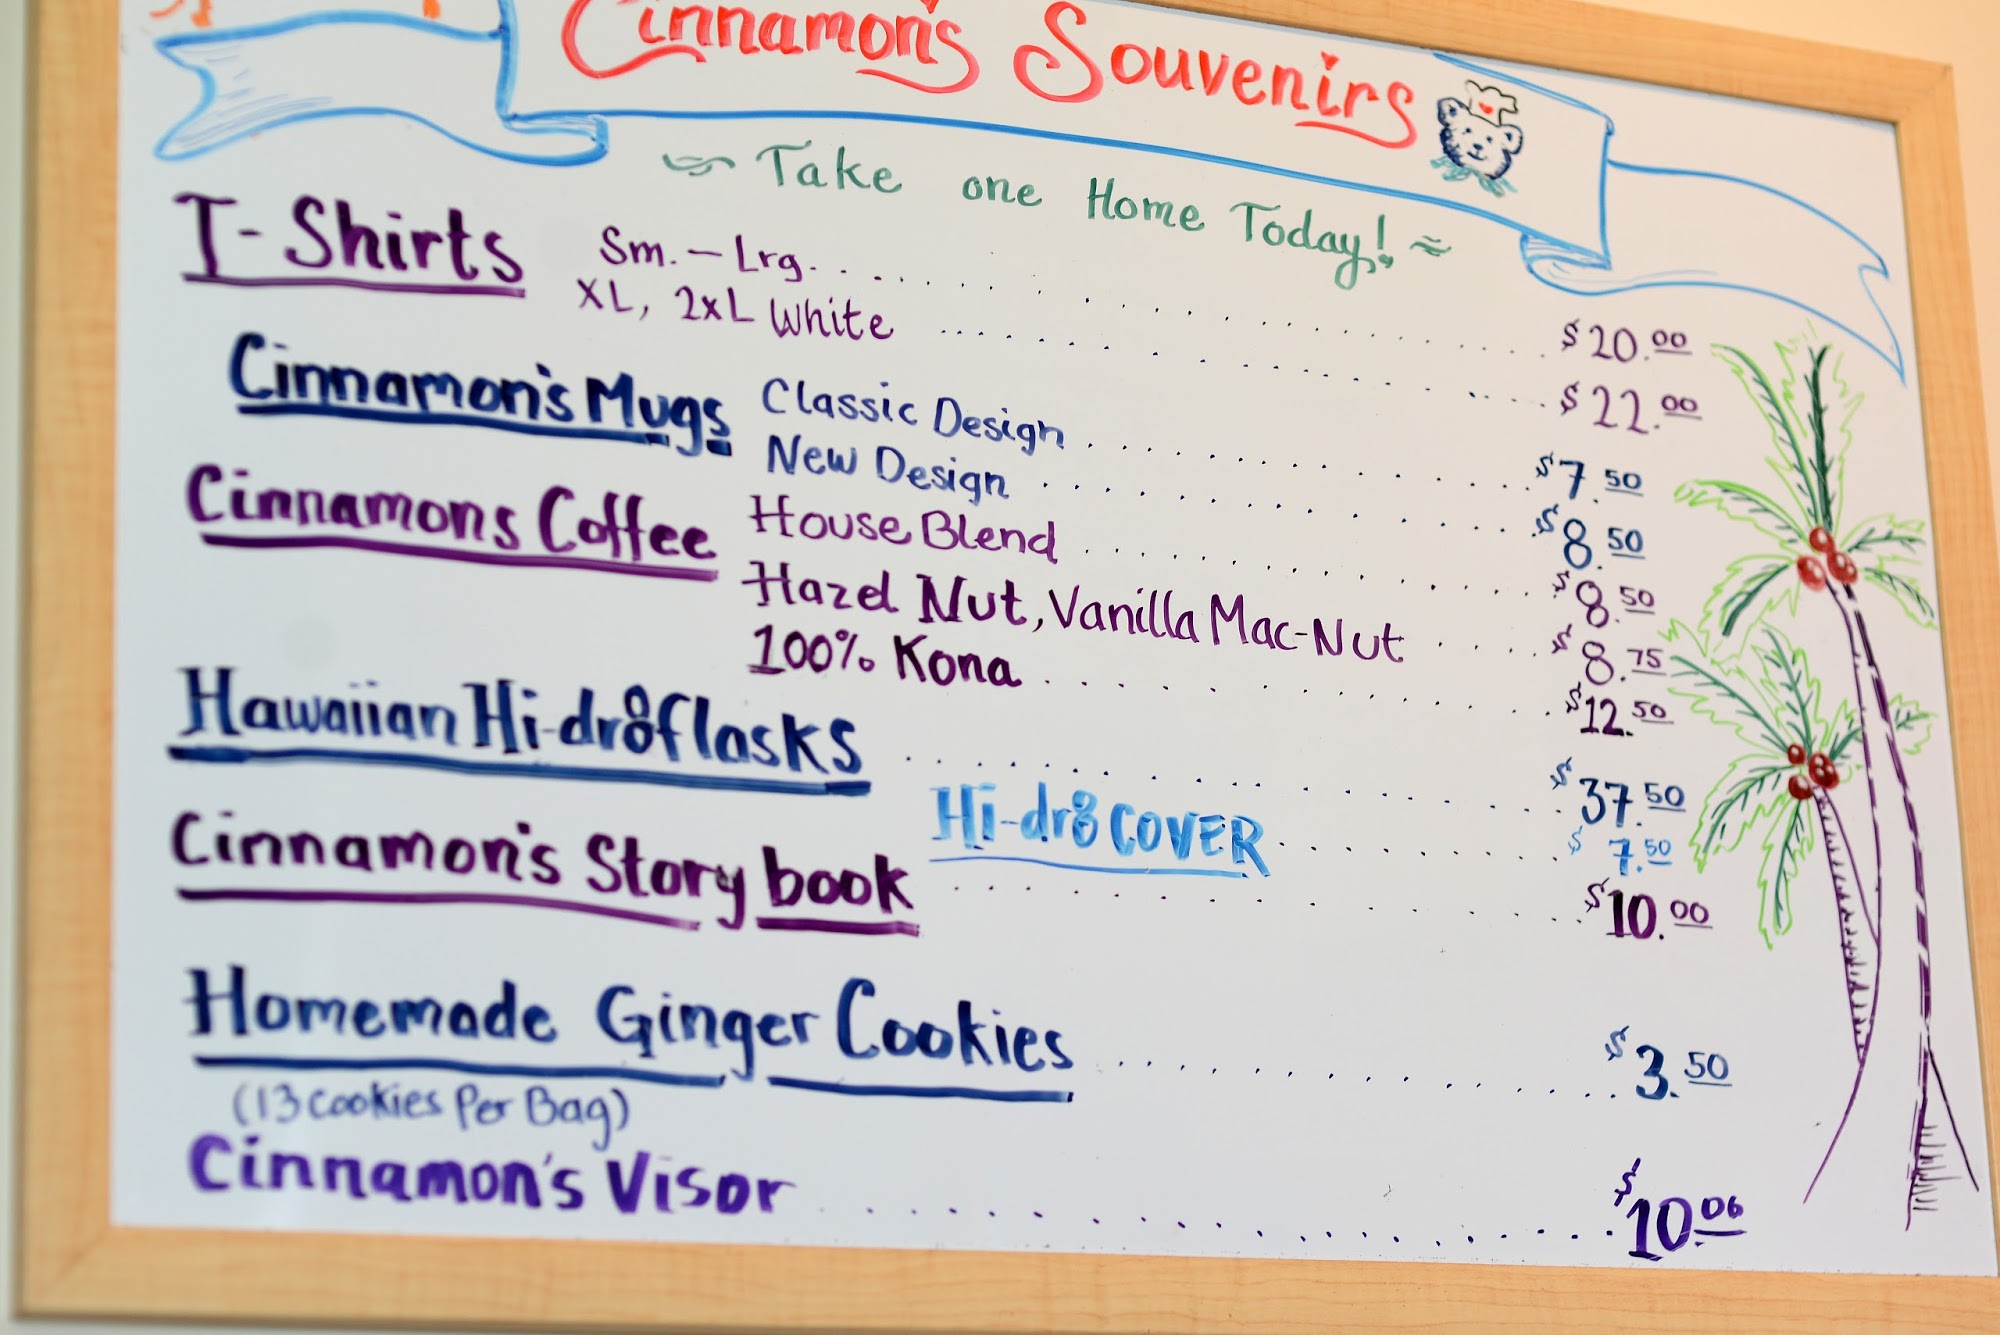 Cinnamon's Souvenirs
Take one Home Today!
T-Shirts Sm.-Lrg. $20.00
XL, 2XL White $22.00
Cinnamon's Mugs Classic Design $7.50
New Design $8.50
Cinnamons Coffee House Blend $8.50
Hazel Nut, Vanilla Mac-Nut $8.75
100% Kona $12.50
Hawaiian Hi-dr8flasks $37.50
Hi-dr8 COVER $7.50
Cinnamon's Story book $10.00
Homemade Ginger Cookies $3.50
(13 Cookies Per Bag)
Cinnamon's Visor $10.06